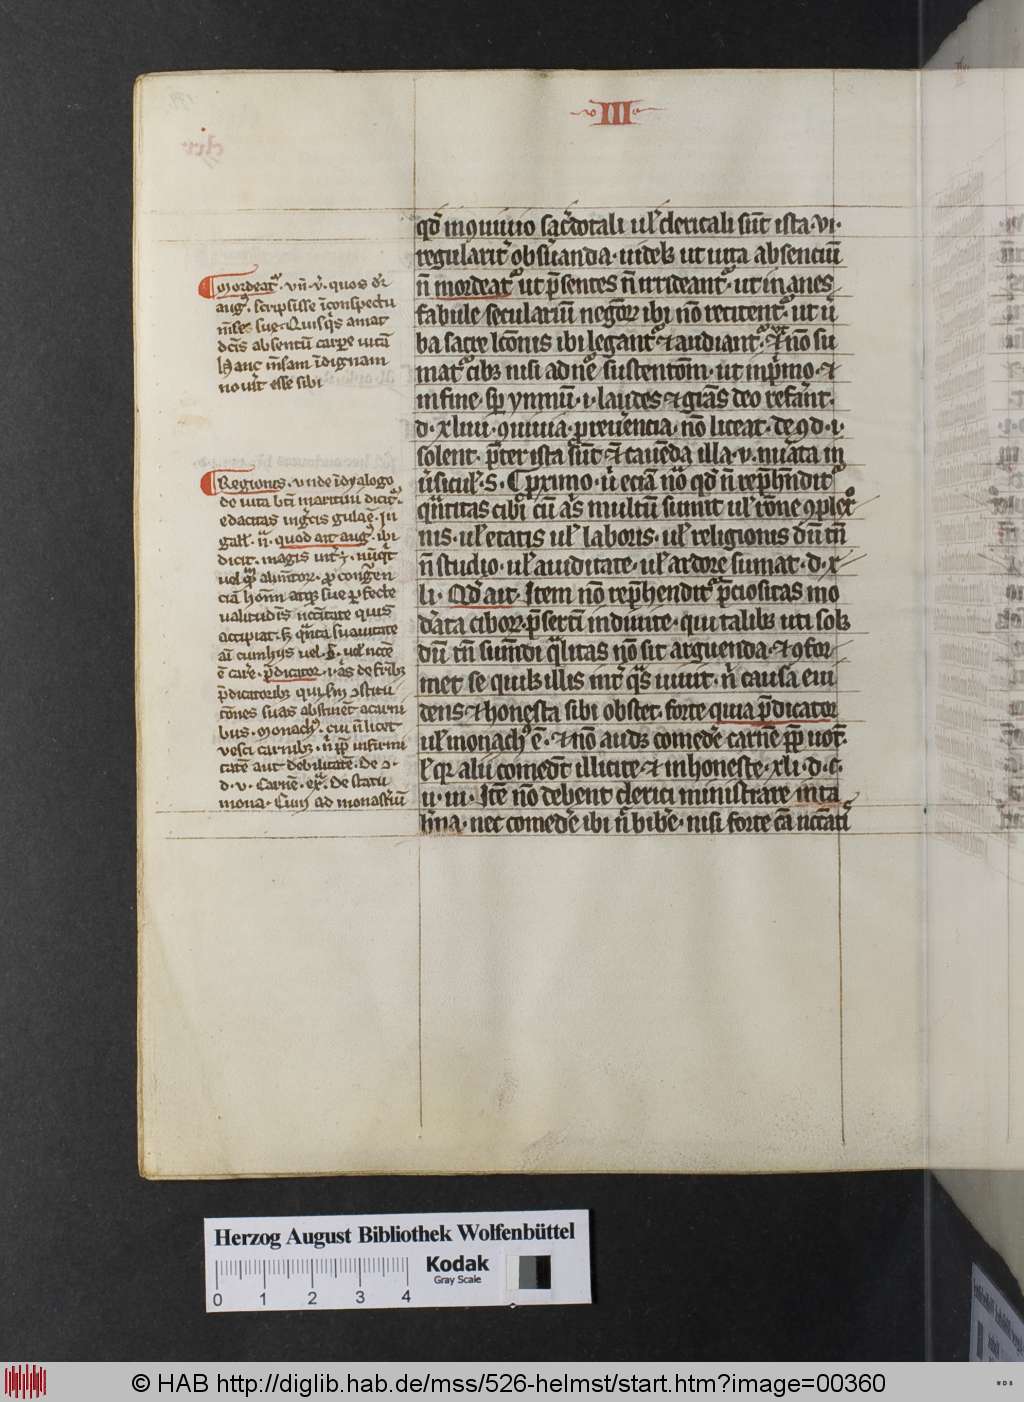 III
qd̄ in ɔuiuio sac̄dotali ul' clericali sūt ista · vi ·
regularit̄ obs̄uanda · uidelꝫ ut uita absenciū
n̄ mordeat᷑ ut p̄sentes n̄ irrideant᷑ · ut inanes
fabule seculariū negoꝝ ibi nō recitent᷑ · ut ū
ba sacre lc̄onis ibi legant᷑ ⁊ audiant᷑ · nō su
mat᷑ cibꝰ nisi ad nc̄e sustentōm · ut in p̄mo · ⁊
in fine · sp̄ ymnū · i · laudes ⁊ grās deo referant ·
d · xliiii · ɔuiuia · nō liceat · de ɔ d · i ·
solent · p̄ter ista sūt ⁊ cauēda illa · v · in
ūsicul' · S · C proximo · ū eciā nō qd̄ n̄ rep̄hendit᷑
q̄ntitas cibi cū as multū sumit ul' rōne ɔplex
nis · ul' etatis ul' laboris · ul' religionis dū tn̄
n̄ studio · ul' auiditate · ul' ardore sumat · d · x
li · Qd̄ ait · Item nō rep̄hendit᷑ p̄ciositas mo
d̄ata ciboꝝ · p̄sertī in diuite · qui talibꝫ uti solꝫ
dū tn̄ sum̄di q̄litas nō sit arguenda · ⁊ ɔfor
met se quibꝫ illis int̄ q̄s uiuit · n̄ causa eui
dens ⁊ honesta sibi obstet · forte quia p̄dicator
ul' monachꝰ ē · ⁊ nō audꝫ comed̄e carnē pp̄ uot̄ ·
l' qꝛ alii comedūt illicite · ⁊ inhoneste · xli · d · c ·
ii · iii · Itē nō debent clerici ministrare in ta
b̄na · nec comed̄e ibi n̄ bib̄e · nisi forte cā nc̄cāti
Mordeat᷑ · vn̄ · v̄ · quos dr̄
aug᷑ · scripsisse ī conspectu
m̄se sue · Quisq̄s amat
dc̄is absentū carp̄e uitā
Hanc m̄sam īdignam
nou̅it esse sibi
Regionis · vnde ī dyalogo
de uita bt̄i martini dicit᷑ ·
edacitas in grecis gula ē · In
gall' · n̄ · quod ait aug᷑ · ibi
dicit · magis
uel alim̄tor · ꝓ congruen
ciā hoīm atqꝫ sue ꝓfecte
ualitudīs nc̄citate quis
accipiat · sꝫ q̄nta suauitate
aī cum hys uel · uel nc̄e
ē car̄e · p̄dicator · i · as de fr̄ibꝫ
p̄dicatoribꝫ qui s̄m ɔstitu
cōnes suas abstinēt a carni
bus · monachꝰ · cui n̄ licet
vesci carnibꝫ · n̄ pp̄ infirmi
tatē aut debilitatē · De ɔ ·
d · v · Carnē · ex̄ · De statu
mona · Cum ad monast̄iū
Herzog August Bibliothek Wolfenbüttel
Kodak
Gray Scale
0 1 2 3 4
© HAB http://diglib.hab.de/mss/526-helmst/start.htm?image=00360